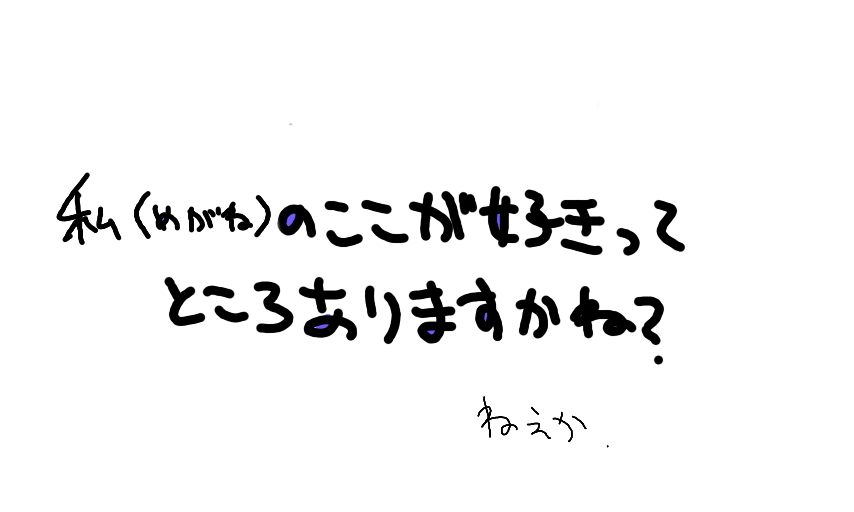 私(めがね)のここが好きって
ところありますかね?
ねえか.